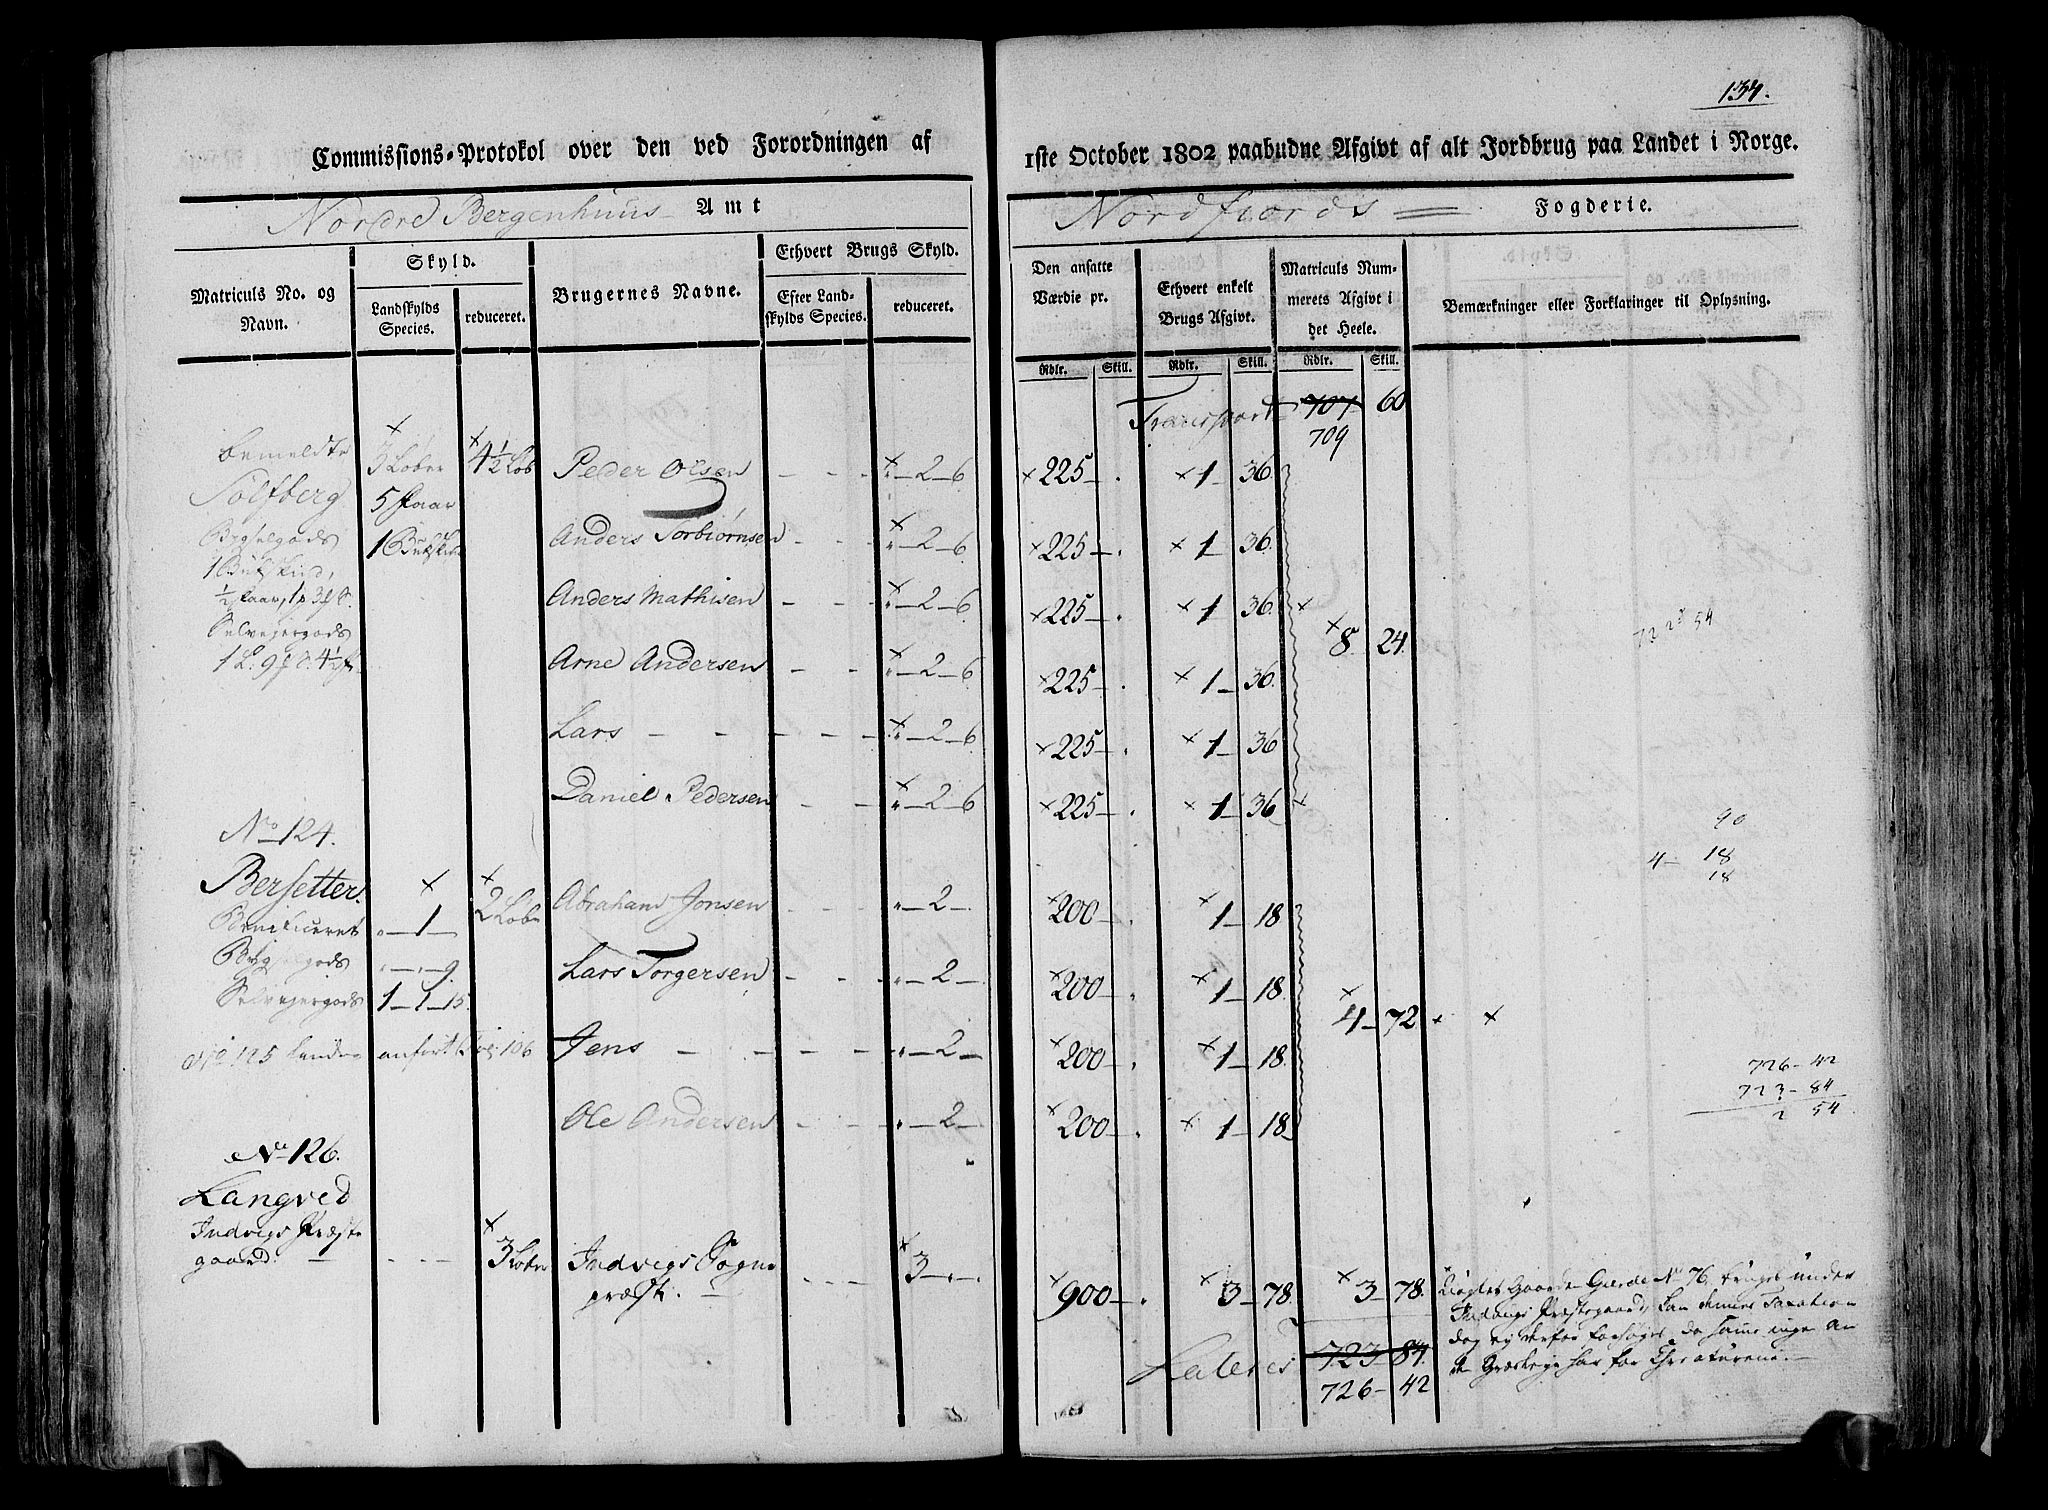 134.
Commissions-Protokol over den ved Forordningen af 1ste October 1802 paabudne Afgivt af alt Jordbrug paa Landet i Norge.
Nordre Bergenhuus Amt
Nordfiords Fogderie.
Matriculs No. og Navn.
Skyld.
Landskylds Species.
reduceret.
Brugernes Navne.
Ethvert Brugs Skyld.
Efter Landskylds Species.
reduceret.
Den ansatte Værdie pr.
Ethvert enkelt Brugs Afgivt.
Matriculs Nummerets Afgivt i det Heele.
Bemærkninger eller Forklaringer til Oplysning.
Rdlr. Skill. Rdlr. Skill. Rdlr. Skill.
Transport 707 60
709
bemeldte × 3 Løber × 4½ Løb Peder Olsen — — × „—2—6 ×225—. ×1—36.
Sølfberg 5 Faar
Bygselgods 1 Bukskin Anders Torbiørnsen — — × „—2—6 ×225—. ×1—36.
1 Bukskind,
½ faar, 1 p 3 Anders Mathisen — — × „—2—6 ×225—. ×1—36. × ×8. 24.
Selvejergods 72 54
1 L. 9 4½ Arne Andersen — — × „—2—6 ×225—. ×1—36.
Lars — — — — — × „—2—6 ×225—. ×1—36
Daniel Pedersen — — × „—2—6 ×225—. ×1—36 ×
No 124. 90
4— 18
18
Bersetter. × × 2 Løber Abraham Jonsen — — „—2—. ×200—. ×1—18
Beneficeret „—1—
Bygselgods „—„—9. Lars Torgersen — — „—2—. ×200—. ×1—18. ×4—72 × ×
Selvejergods 1—1—15.
No 125 anført 106 Jens — — — — „—2— ×200—. ×1—18.
726—42
723—84
2 54
Ole Andersen — — „—2— ×200—. ×1—18
No 126.
Langved
Indvigs Præste
gaard. — — — — × 3 Løber Indvigs Sogne × 3—„—. ×900—. ×3—78. ×3—78.
præst. —
Gaarden Gierde No 76, bruges under
Indvigs Præstegaard, kan denne Taxation
dog ey derfor forhøyes, da samme ingen an
Lateres 723 84.
726—42